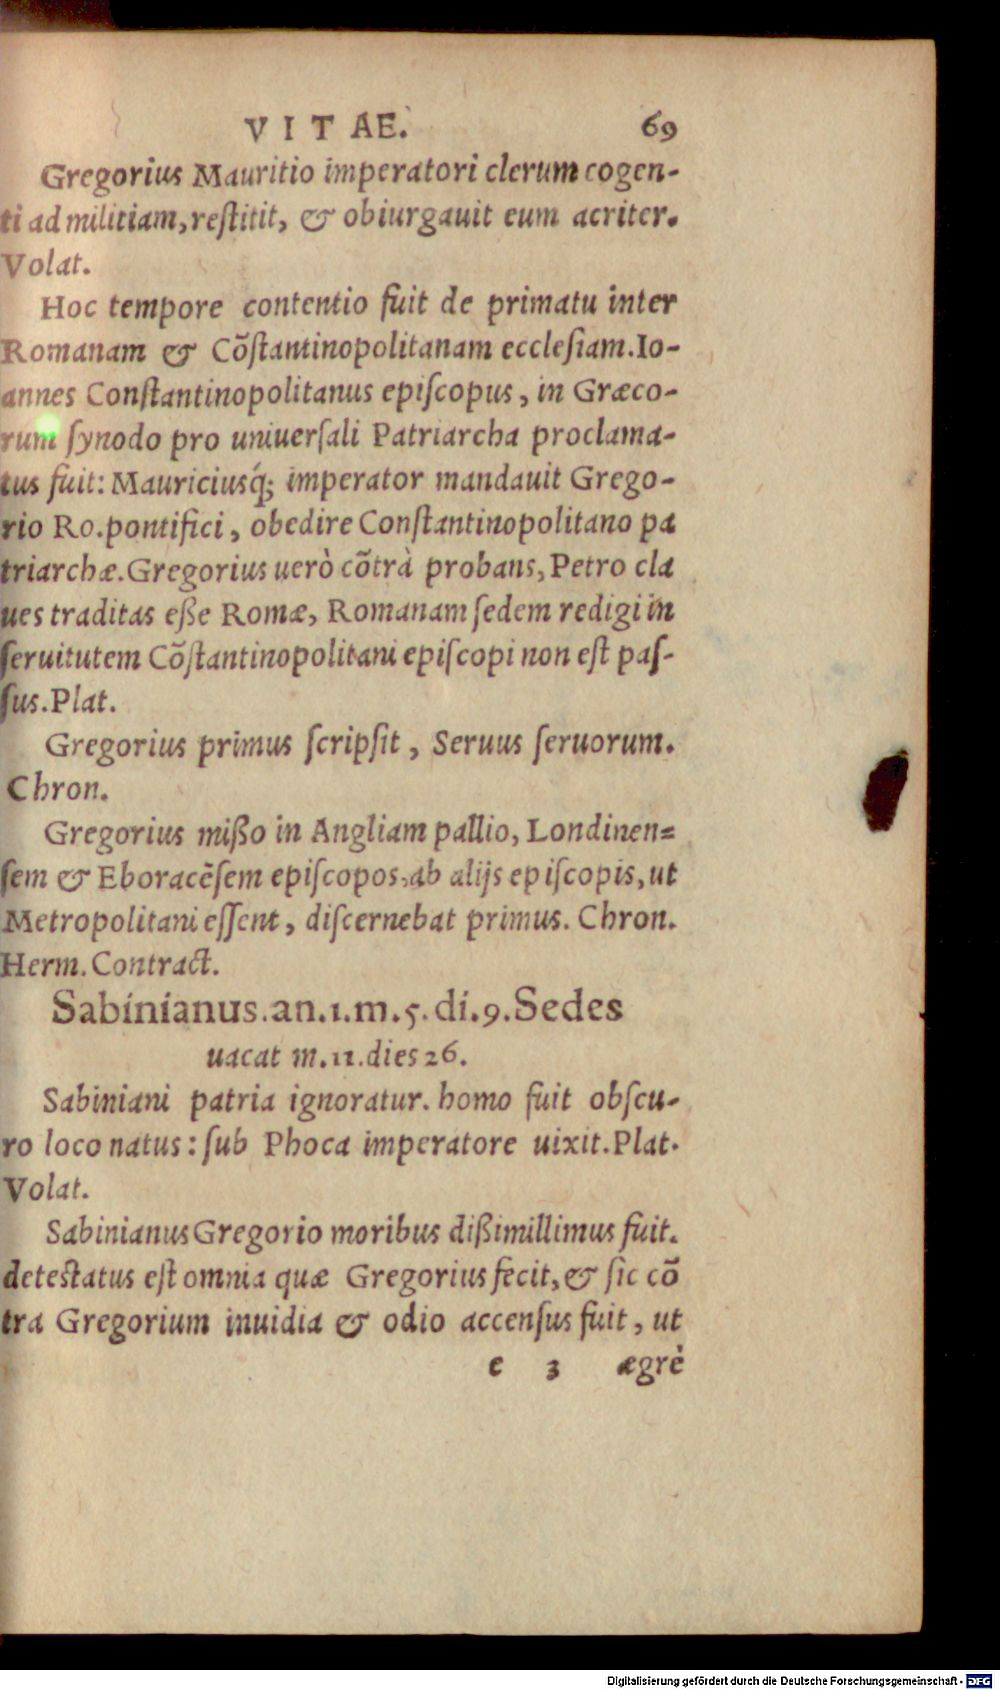 VITAE. 69
Gregorius Mauritio imperatori clerum cogen-
ti ad militiam, reſtitit, & obiurgauit eum acriter.
Volat.
Hoc tempore contentio fuit de primatu inter
Romanam & Cõſtantinopolitanam eccleſiam. Io-
annes Conſtantinopolitanus epiſcopus, in Græco-
rum ſynodo pro uniuerſali Patriarcha proclama-
tus fuit: Mauriciusq́; imperator mandauit Grego-
rio Ro. pontifici, obedire Conſtantinopolitano pa
triarchæ. Gregorius uerò cõtrà probans, Petro cla
ues traditas eſſe Romæ, Romanam ſedem redigi in
ſeruitutem Cõſtantinopolitani epiſcopi non eſt paſ-
ſus. Plat.
Gregorius primus ſcripſit, Seruus ſeruorum.
Chron.
Gregorius miſſo in Angliam pallio, Londinen-
ſem & Eboracẽſem epiſcopos, ab alijs epiſcopis, ut
Metropolitani eſſent, diſcernebat primus. Chron.
Herm. Contract.
Sabinianus. an. 1. m. 5. di. 9. Sedes
uacat m. 11. dies 26.
Sabiniani patria ignoratur. homo fuit obſcu-
ro loco natus: ſub Phoca imperatore uixit. Plat.
Volat.
Sabinianus Gregorio moribus diſſimillimus fuit.
deteſtatus eſt omnia quæ Gregorius fecit, & ſic cõ
tra Gregorium inuidia & odio accenſus fuit, ut
e 3 ægrè
Digitalisierung gefördert durch die Deutsche Forschungsgemeinschaft - DFG